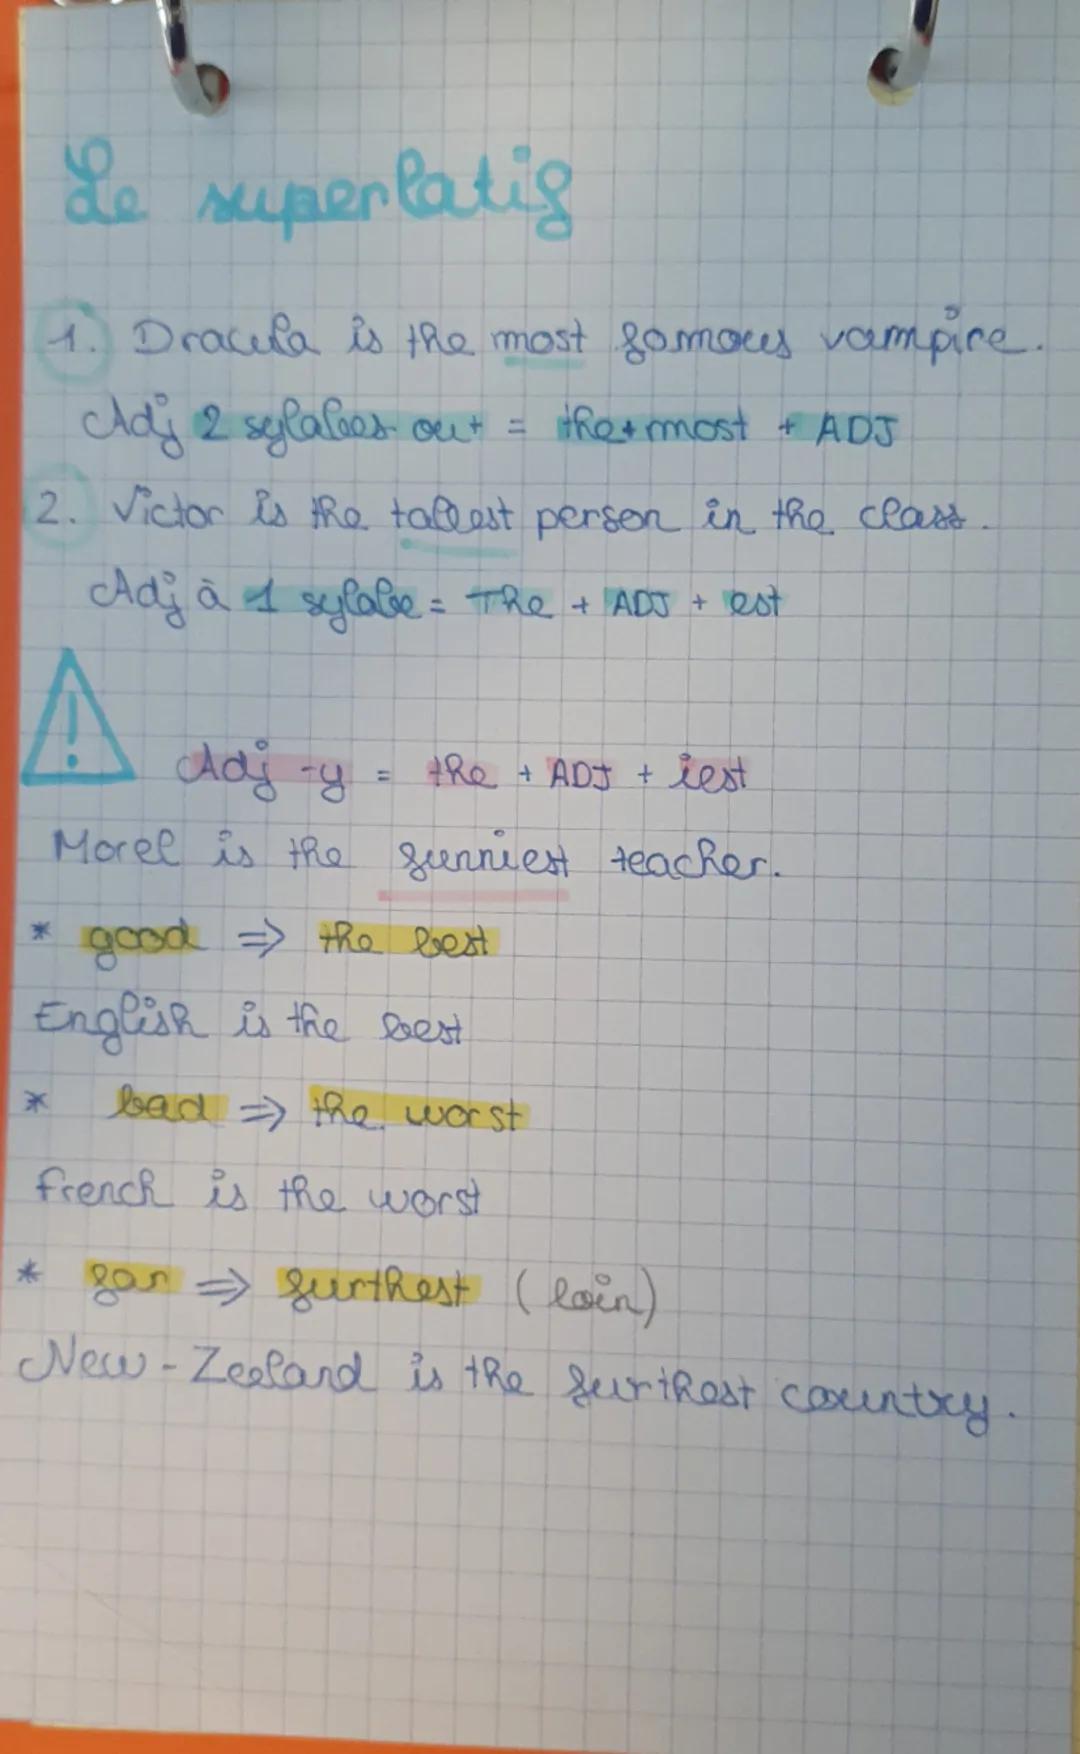 Le superlatif
1. Dracula is the most famous vampire.
Adj 2 sylabes ou + = the + most + ADJ
2. Victor is the tallest person in the class.
Adj à 1 sylabe = The + ADJ + est
!
Adj -y = the + ADJ + iest
Morel is the funniest teacher.
* good => the best
English is the best
* bad => the worst
french is the worst
* far => furthest (loin)
New-Zeeland is the furthest country.